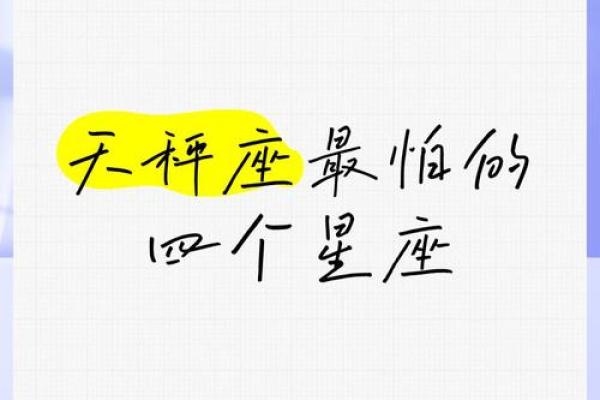 天秤座最怕的
四个星座